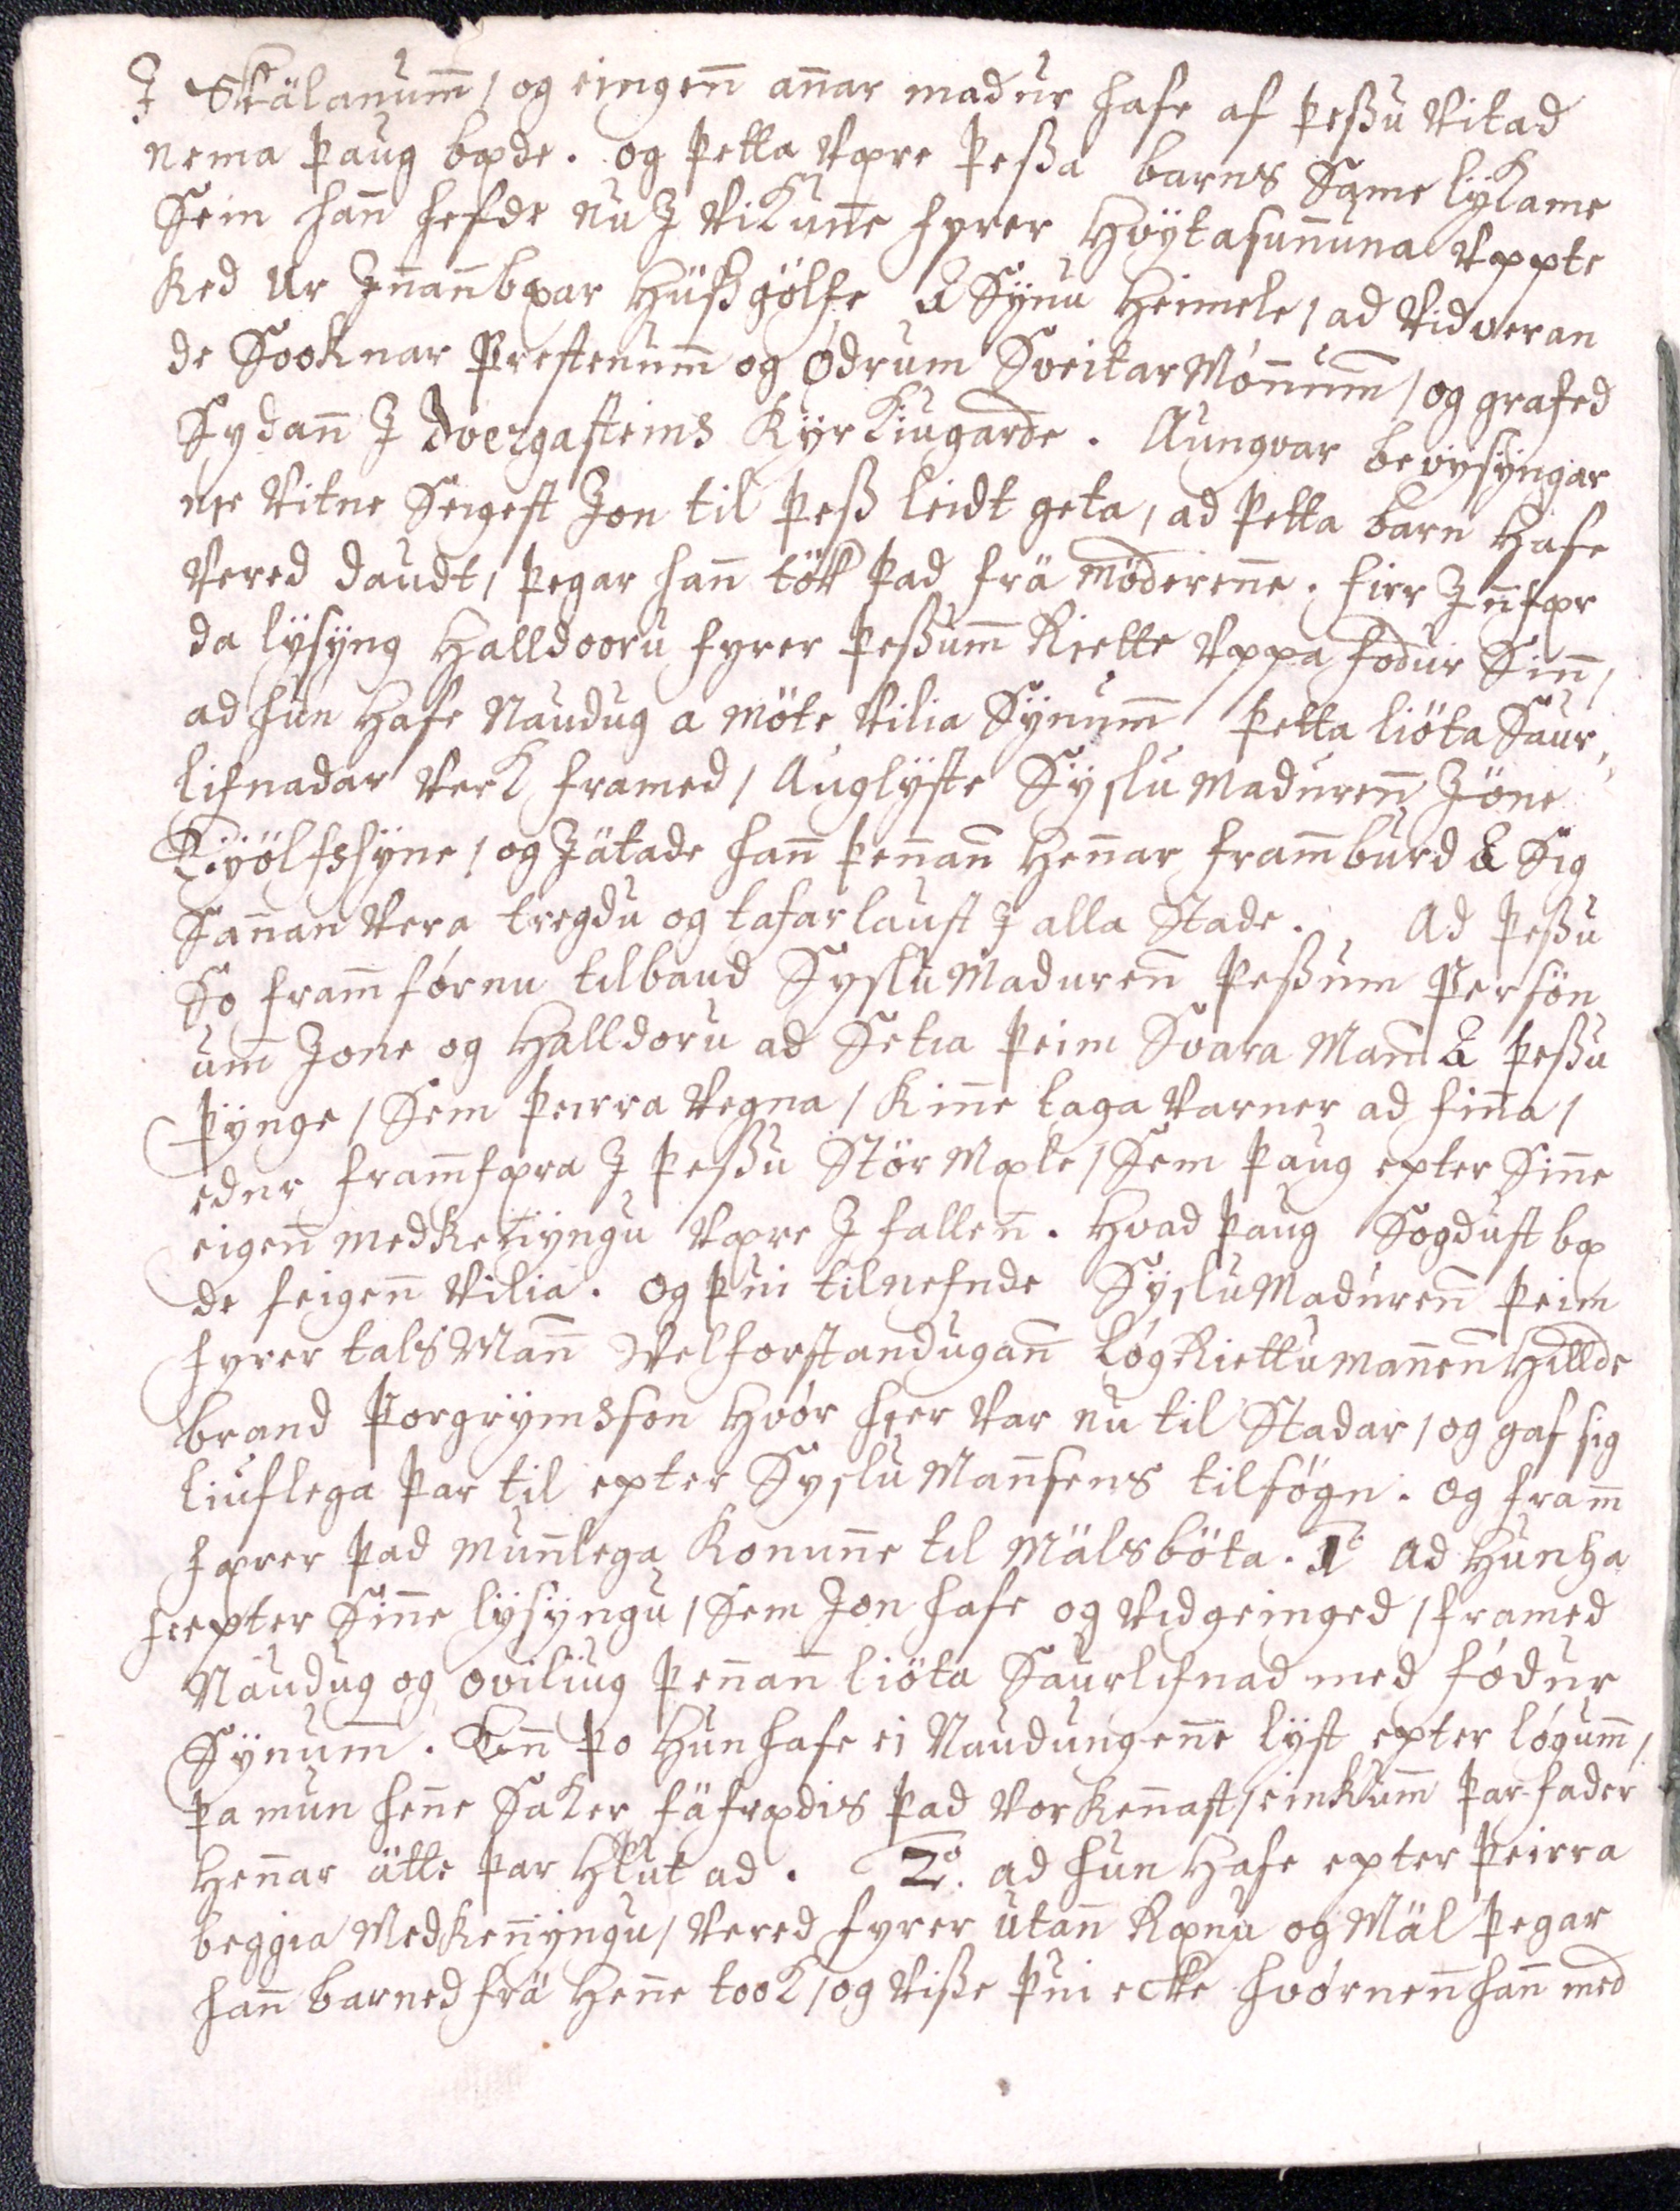 J Skälanum̄ / og eingen̄ an̄ar madur hafe af þeßu Vitad
nema þaug bæde. og þetta Være þeßa barns Same lykame
Sem han̄ hefde nu J Vikun̄e fyrer Hvÿtasun̄una Vppte
ked Ur Jn̄an̄bæar Hüßgölfe ä Sÿnu Heimele / ad Vidveran
de Sooknar Prestenum̄ og ódrum SveitarMónnum̄ / og grafed
Sydan̄ J Dvergasteins Kyrkiugarde. Aungvar bevysÿngar
nie Vitne Seigest Jon til þeß leidt geta / ad þetta barn Hafe
Vered daudt / þegar han̄ tök þad frä möderen̄e. firr Jn̄fær
da lÿsÿng Halldooru fyrer þeßum̄ Riette Vppa fodur Sin̄ /
ad hun Hafe Naudug a möte Vilia Sÿnum̄ þetta liöta Saur,,
lifnadar Verk framed / Auglÿste SysluMaduren̄ Jöne
Eyölfssyne / og Jätade han̄ þen̄an̄ Hen̄ar fram̄burd ä Sig
San̄an Vera tregdu og tafarlaust J alla Stade. Ad þeßu
So fram̄fórnu tilbaud SysluMaduren̄ þeßum Persön
um̄ Jone og Halldoru ad Setia þeim Svara Man̄ ä þeßu
þÿnge / Sem þeirra Vegna / kin̄e laga Varner ad fin̄a /
edur fram̄færa J þeßu StörMæle / Sem þaug epter Sin̄e
eigen̄ medken̄yngu Være J fallen̄. Hvad þaug Sogdust bæ
de feigen̄ Vilia. og þui tilnefnde SÿsluMaduren̄ þeim
fyrer talsMan̄ Velforstandugan̄ LógRiettuman̄en̄ Hillde
brand Þorgrÿmsson Hvór hier Var nu til Stadar / og gaf sig
liuflega þar til epter SysluMan̄sens tilsógn. og fram̄
færer þad mun̄lega Konun̄e til Mälsböta. 1º Ad Hun ha
fe epter Sin̄e lÿsÿngu / Sem Jon hafe og Vidgeinged / framed
Naudug og oviliug þen̄an̄ liöta Saurlifnad med fódur
Sÿnum̄. En̄ þo Hun hafe ei Naudungen̄e lÿst epter lógum̄ /
þa mun hen̄e Saker fäfrædis þad Vorken̄ast / einkum̄ þar fader
Hen̄ar ätte þar Hlut ad. 2º. ad hun Hafe epter þeirra
beggia Medken̄yngu / Vered fyrer utan̄ Rænu og Mäl þegar
han̄ barned frä Hen̄e took / og Viße þui ecke hvórnen̄ han̄ med